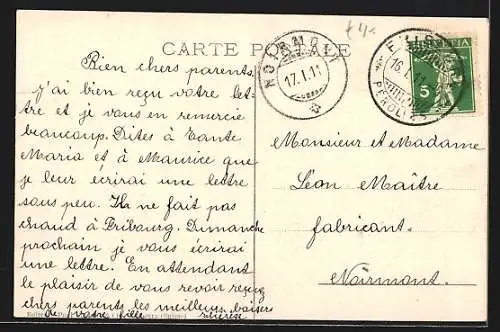 CARTE POSTALE
£4.-
NOIRMONT
17.I.11
FRIBOURG
16.I.11
PÉROLLES
HELVETIA
5
Bien chers parents,
J'ai bien reçu votre let-
tre et je vous en remercie
beaucoup. Dites à Tante
Maria et à Maurice que
je leur écrirai une lettre
sous peu. Il ne fait pas
chaud à Fribourg. Dimanche
prochain je vous écrirai
une lettre. En attendant
le plaisir de vous revoir reçevez
chers parents les meilleurs baisers
de votre fille
Monsieur et Madame
Léon Maître
fabricant.
Noirmont.